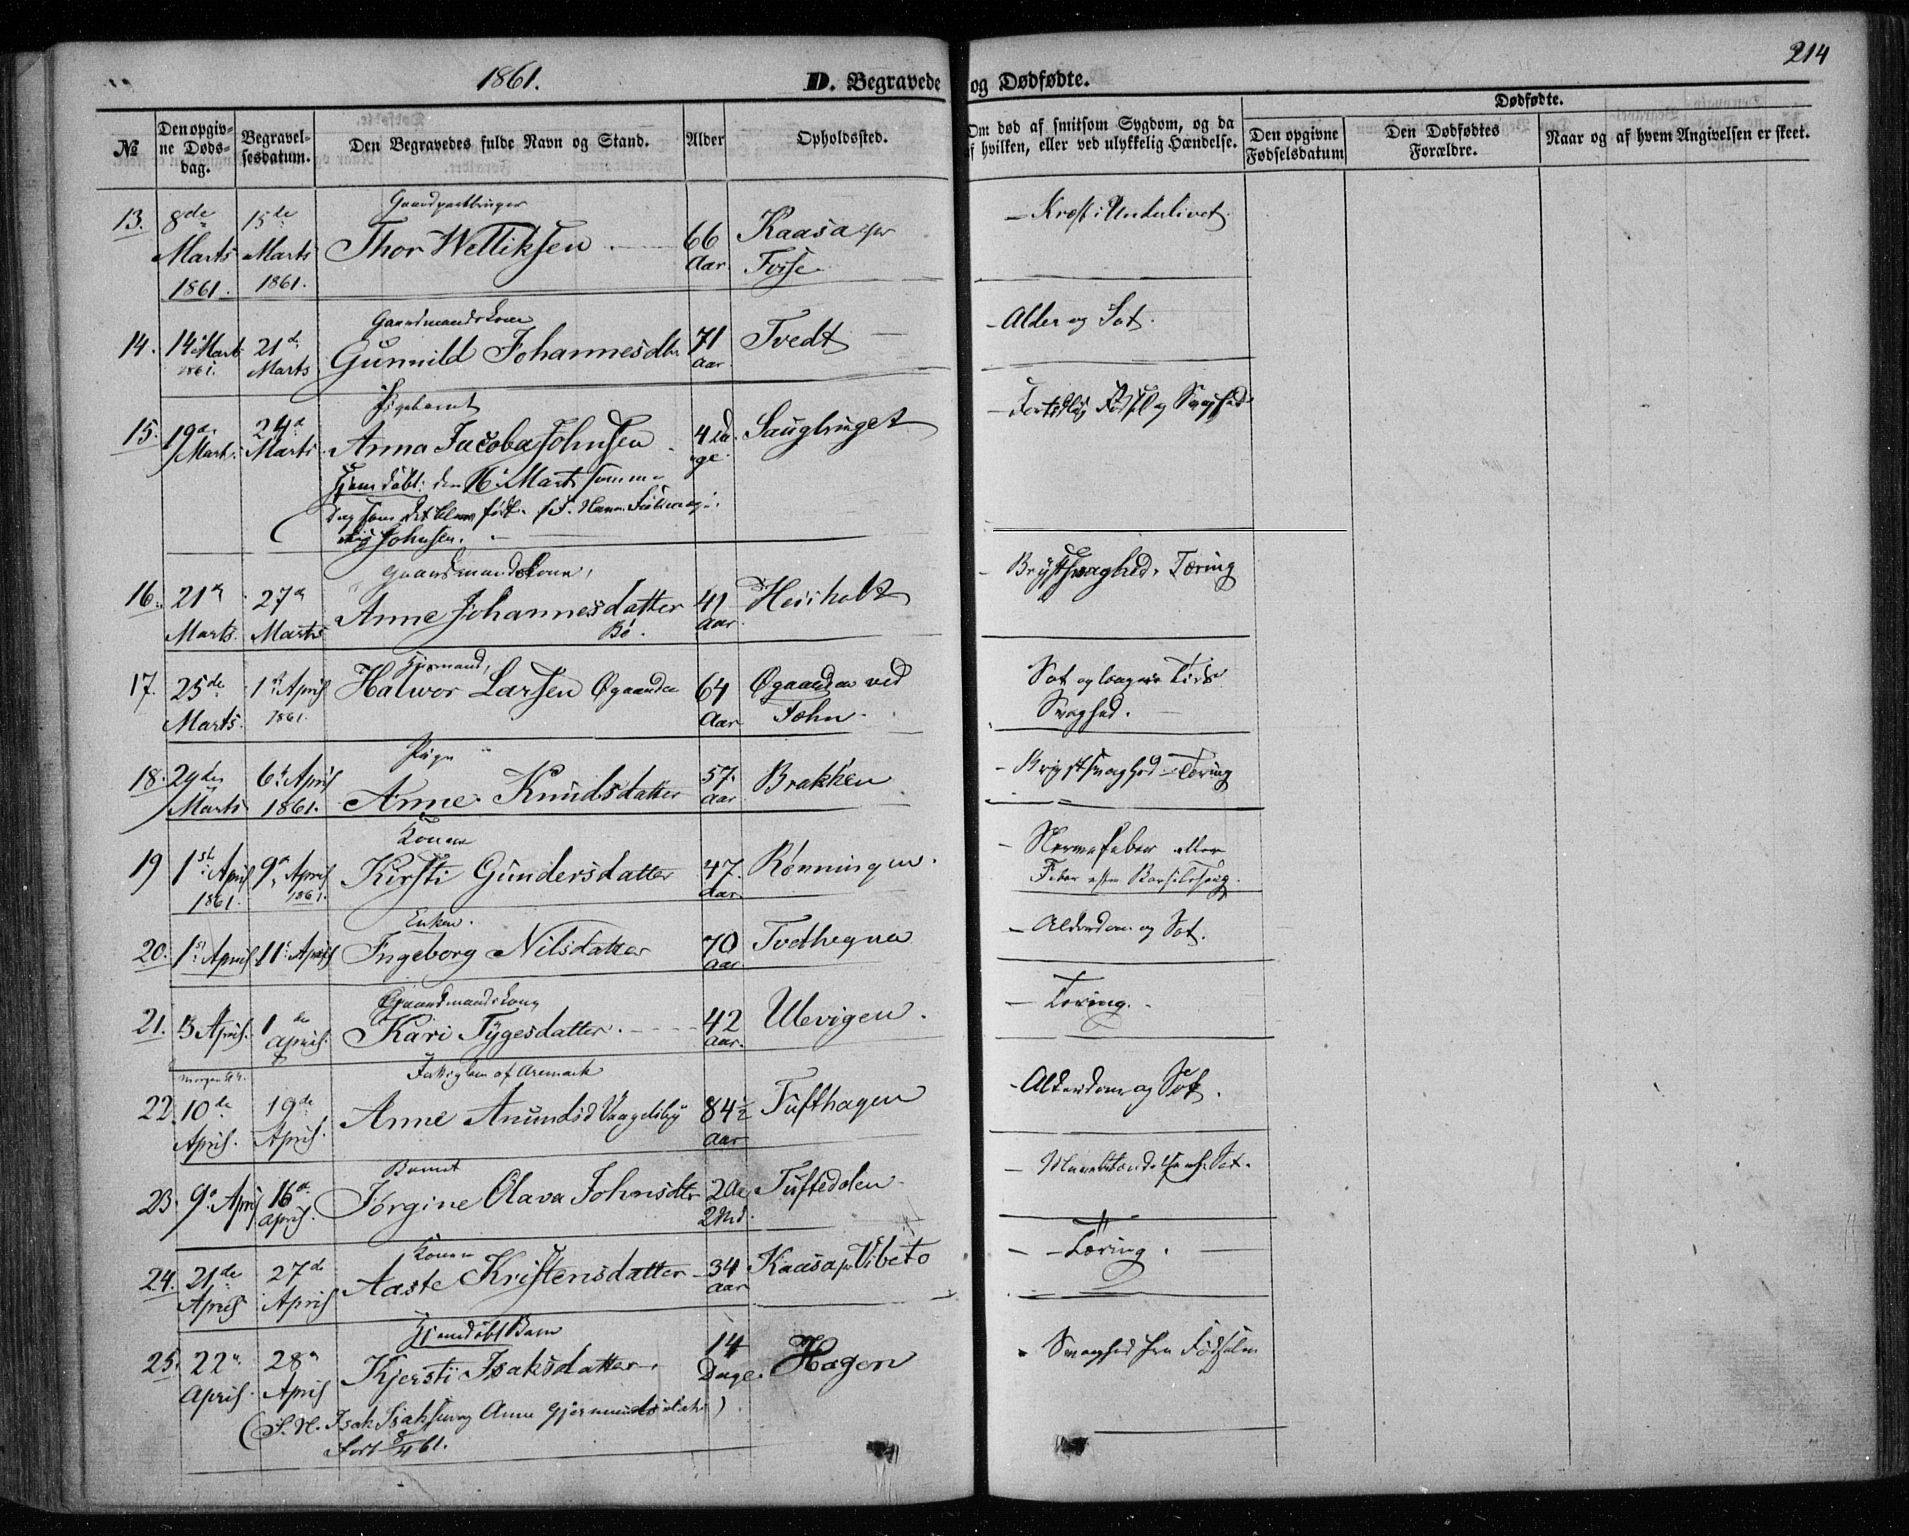 1861.
D. Begravede og Dødfødte.
214
№
Den opgivne Døds-dag.
Begravelsesdatum.
Den Begravedes fulde Navn og Stand.
Alder
Opholdssted.
Om død af smitsom Sygdom, og da af hvilken, eller ved ulykkelig Hændelse.
Dødfødte.
Den opgivne Fødselsdatum
Den Dødfødtes Forældre.
Naar og af hvem Angivelsen er skeet.
13. 8de Marts 1861. 15de Marts 1861.
Thor Wetliksen 66 Aar. Kaasa
Kræft i Underlivet.
14. 14 Marts 1861. 21d Marts
Gaardmandskone
Gunnild Johannesdtr 71 Aar. Tvedt
Alder og Sot.
15. 19de Marts. 24d Marts
Pigebarnet
Anna Jacoba Johnsen 4 Dage. Sauglunget
Fødsel og Svaghed
Hjemdøbt: den 16 Marts samme
Dag som det blev født.
Johnsen.
16. 21de Marts. 27de Marts
Gaardmandskone,
Anne Johannesdatter 41 Aar. Heisholt
Bø.
Brystsvaghed. Tæring
17. 25de Marts. 1st April 1861.
Huusmand,
Halvor Larsen Øgaarden 64 Aar. Øgaarden ved
Sot og længere Tids
Svaghed.
18. 29des Marts 6te April 1861.
Pige
Anne Knudsdatter 57. Aar Brækken
Brystsvaghed Tæring
19 1st April 1861. 9de April 1861.
Konen
Kirsti Gundersdatter 47. Aar. Rønningen.
Nervefeber eller
Feber efter Barselseng.
20. 1st April 11te April
Enken.
Ingeborg Nilsdatter 70 Aar. Tvedthegna
Alderdom og Sot.
21. 3 April. 1 April.
Gaardmandskone
Kari Tygesdatter. 42 Aar. Ulevigen.
Tæring.
22. 10de April. 19de April.
Anne Anundsd Vaagelsby 84½ Aar Tufthagen
Alderdom og Sot.
23. 9de April 16de April.
Barnet
Jørgine Olava Johnsdtr 2 Aar 2 Md. Tuftedalen
24. 21de April 27de April
Konen
Aaste Kristensdatter 34 Aar Kaasa p Vibeto
Tæring.
25. 22de April. 28de April
Hjemdøbt Barn
Kjersti Isaksdatter. 14 Dage. Hagen
Svaghed fra Fødselen
Isak Isaksen og Anne Gjermundsdatr)